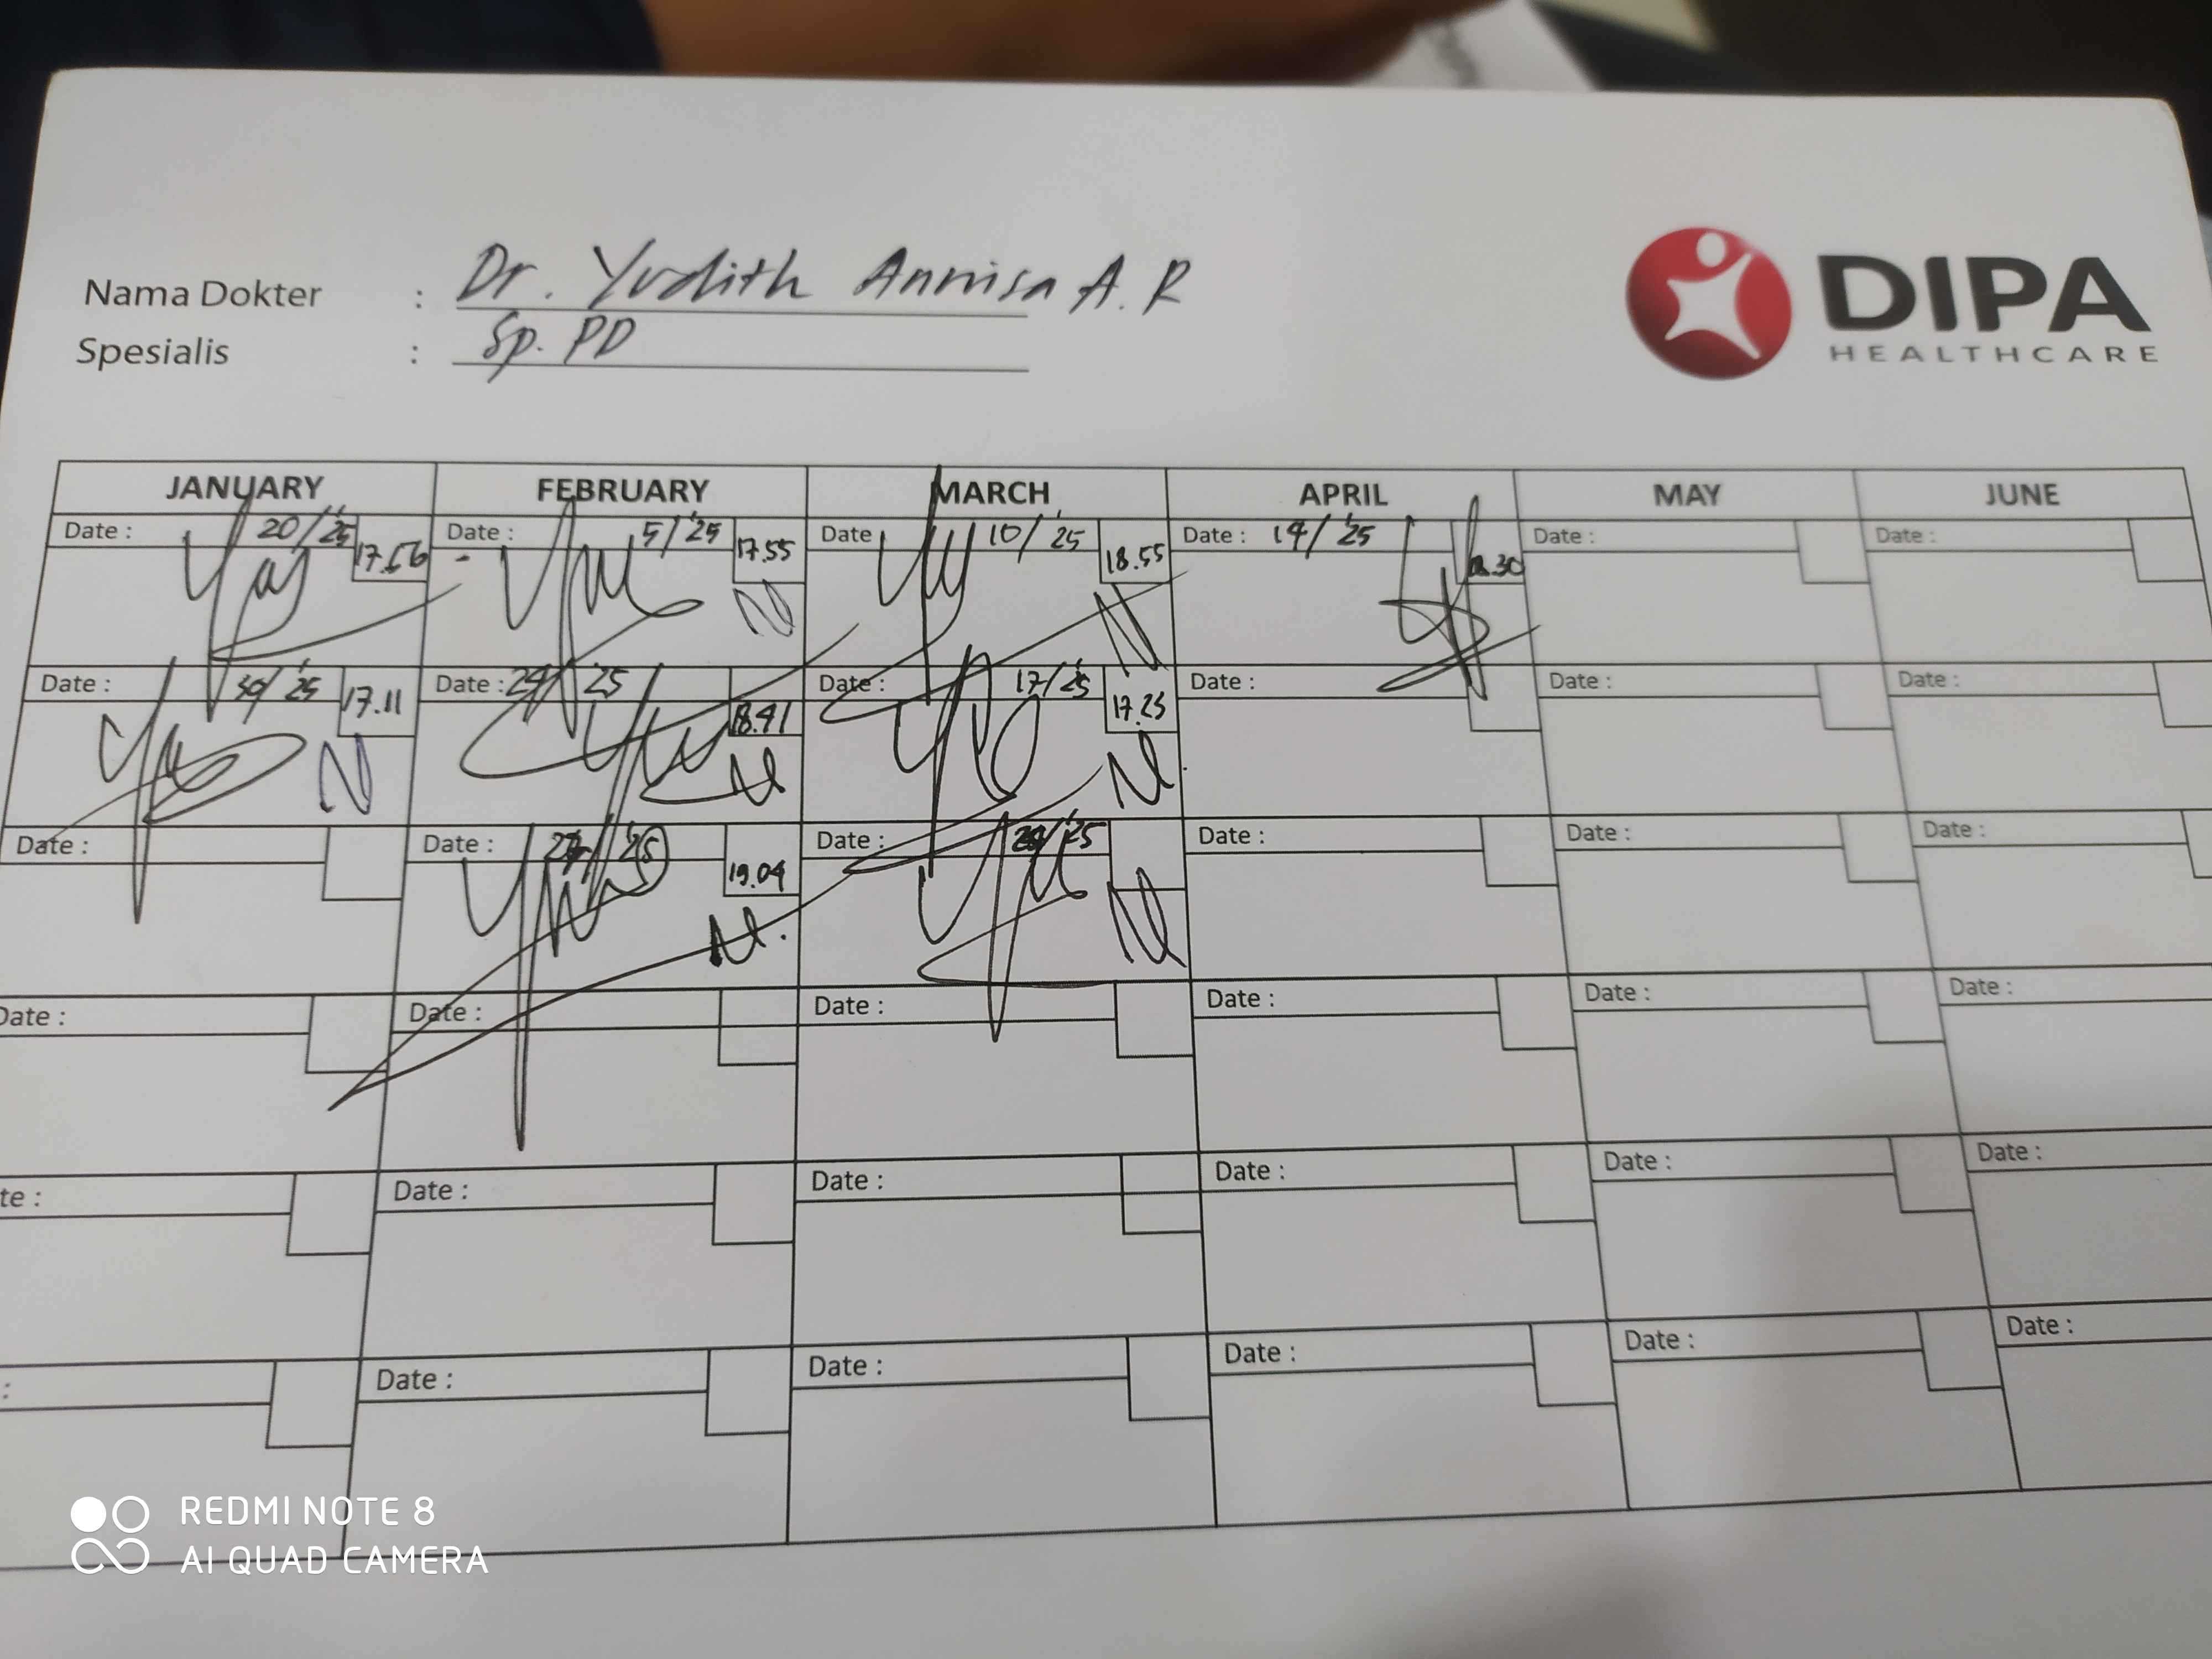 Nama Dokter : Dr. Yudith Annisa A. R
Spesialis : Sp. PD
DIPA
HEALTHCARE
JANUARY FEBRUARY MARCH APRIL MAY JUNE
Date : 20/'25 Date : 5/'25 17.55 Date 10/'25 18.55 Date : 14/'25 Date : Date :
N N
Date : 30/'25 17.11 Date : 24/'25 18.41 Date : 17/'25 17.25 Date : Date : Date :
N N N
Date : Date : '25 19.04 Date : '25 Date : Date : Date :
N. N
Date : Date : Date : Date : Date : Date :
te : Date : Date : Date : Date : Date :
: Date : Date : Date : Date : Date :
REDMI NOTE 8
AI QUAD CAMERA